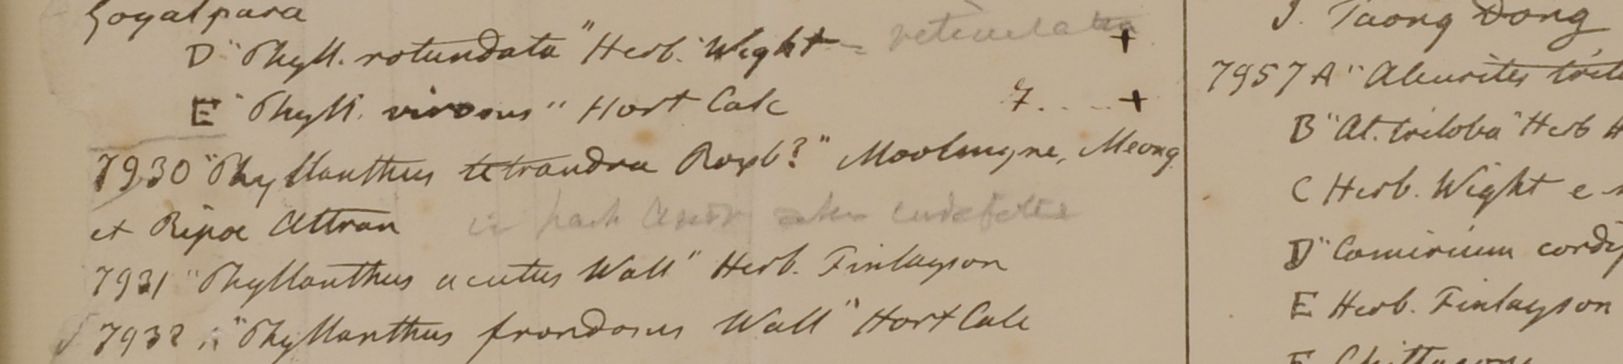 Goyalpara
D "Phyll. rotundata" Herb. Wight = reticulatus +
E "Phyll. virosus" Hort Calc 7. . . . +
7930 "Phyllanthus tetrandra Roxb?" Moolmyne, Meong
et Ripae Attran
7931 "Phyllanthus acutus Wall" Herb. Finlayson
7932 "Phyllanthus frondosus Wall" Hort Calc
J. Taong Dong
7957 A "Aleurites
B "Al. triloba" Herb
C Herb. Wight e
D "Camirium
E Herb. Finlayson
F Chittagong